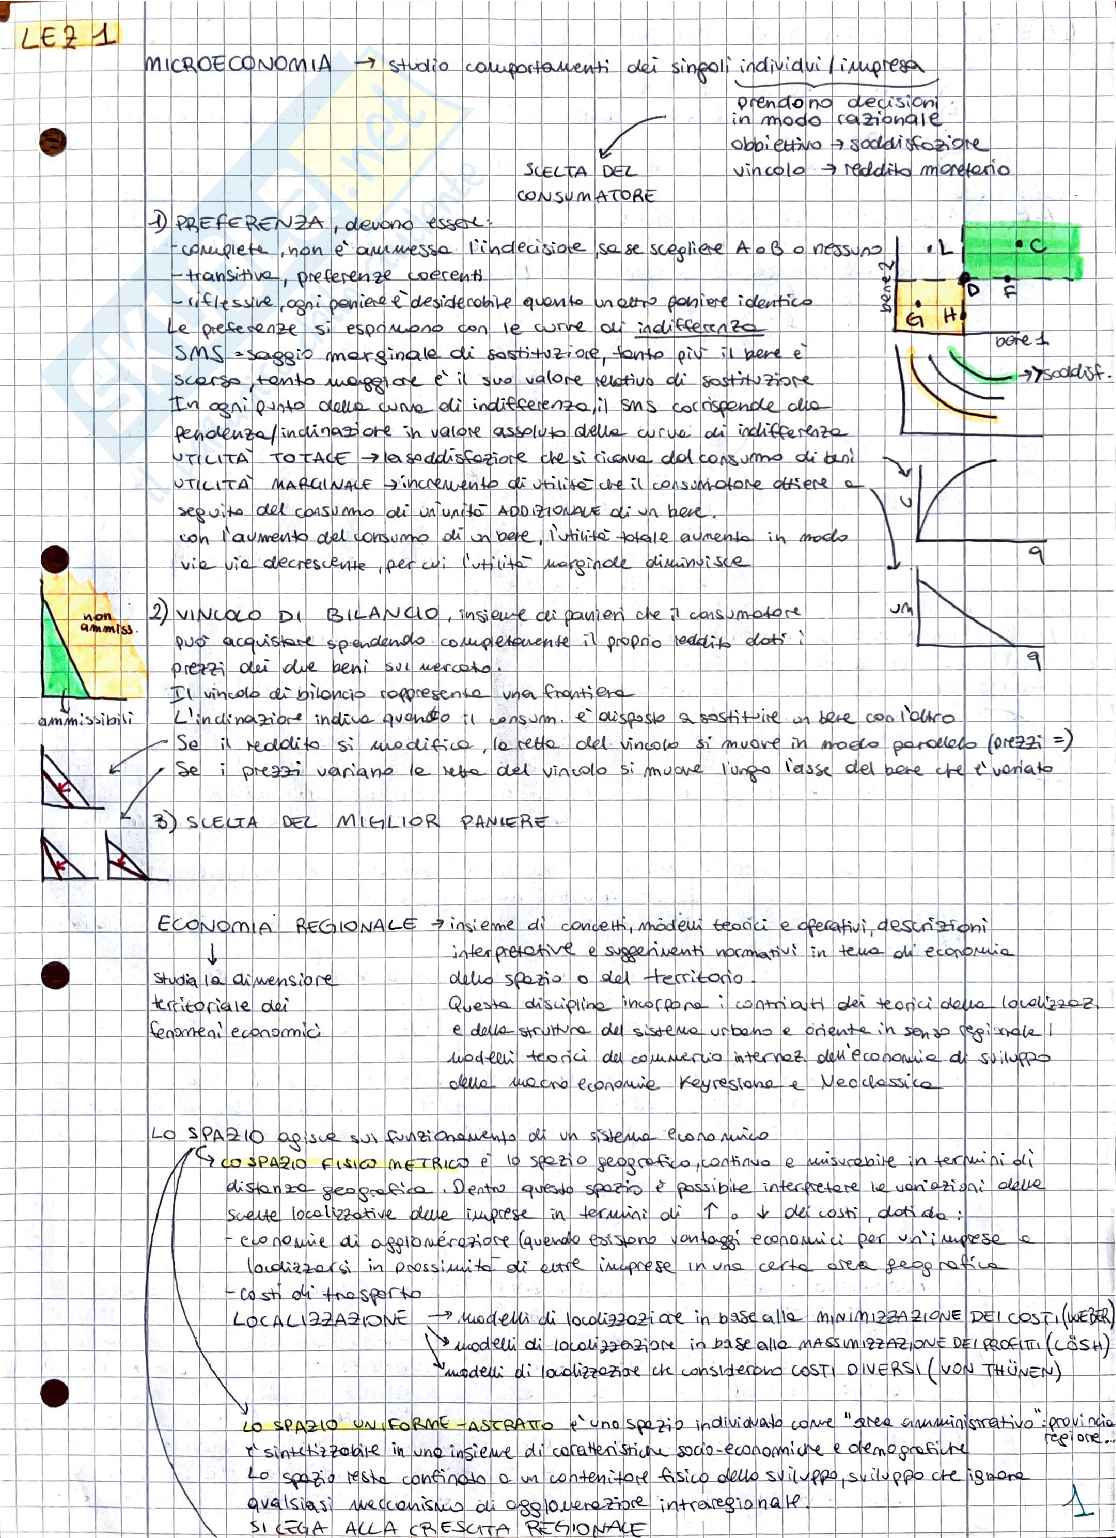 LEZ 1
MICROECONOMIA → studio comportamenti dei singoli individui/impresa
prendono decisioni
in modo razionale
obbiettivo → soddisfazione
vincolo → reddito monetario
SCELTA DEL
CONSUMATORE
1) PREFERENZA, devono essere:
- complete, non è ammessa l'indecisione, so se scegliere A o B o nessuno
- transitive, preferenze coerenti
- riflessive, ogni paniere è desiderabile quanto un altro paniere identico
Le preferenze si esprimono con le curve di indifferenza
SMS = saggio marginale di sostituzione, tanto più il bene è
scarso, tanto maggiore è il suo valore relativo di sostituzione
In ogni punto della curva di indifferenza, il SMS corrisponde alla
pendenza/inclinazione in valore assoluto della curva di indifferenza
UTILITÀ TOTALE → la soddisfazione che si ricava dal consumo di beni
UTILITÀ MARGINALE → incremento di utilità che il consumatore ottiene a
seguito del consumo di un'unità ADDIZIONALE di un bene.
con l'aumento del consumo di un bene, l'utilità totale aumenta in modo
via via decrescente, per cui l'utilità marginale diminuisce
bene 2
L
C
D
F
G
H
bene 1
→ >soddisf.
U
q
UM
q
non
ammiss.
ammissibili
2) VINCOLO DI BILANCIO, insieme dei panieri che il consumatore
può acquistare spendendo completamente il proprio reddito dati i
prezzi dei due beni sul mercato.
Il vincolo di bilancio rappresenta una frontiera
L'inclinazione indica quanto il consum. è disposto a sostituire un bene con l'altro
Se il reddito si modifica, la retta del vincolo si muove in modo parallelo (prezzi =)
Se i prezzi variano la retta del vincolo si muove lungo l'asse del bene che è variato
3) SCELTA DEL MIGLIOR PANIERE
ECONOMIA REGIONALE → insieme di concetti, modelli teorici e operativi, descrizioni
interpretative e suggerimenti normativi in tema di economia
dello spazio o del territorio.
Questa disciplina incorpora i contributi dei teorici della localizzaz.
e della struttura del sistema urbano e orienta in senso regionale i
modelli teorici del commercio internaz. dell'economia di sviluppo
della macro economia Keynesiana e Neoclassica
studia la dimensione
territoriale dei
fenomeni economici
LO SPAZIO agisce sul funzionamento di un sistema economico
LO SPAZIO FISICO METRICO è lo spazio geografico, continuo e misurabile in termini di
distanza geografica. Dentro questo spazio è possibile interpretare le variazioni delle
scelte localizzative delle imprese in termini di ↑ o ↓ dei costi, dati da:
- economie di agglomerazione (quando esistono vantaggi economici per un'impresa a
localizzarsi in prossimità di altre imprese in una certa area geografica
- costi di trasporto
LOCALIZZAZIONE → modelli di localizzazione in base alla MINIMIZZAZIONE DEI COSTI (WEBER)
modelli di localizzazione in base alla MASSIMIZZAZIONE DEI PROFITTI (LÖSH)
modelli di localizzazione che considerano COSTI DIVERSI (VON THÜNEN)
LO SPAZIO UNIFORME-ASTRATTO è uno spazio individuato come "area amministrativa": provincia
regione...
È sintetizzabile in un insieme di caratteristiche socio-economiche e demografiche
Lo spazio resta confinato a un contenitore fisico dello sviluppo, sviluppo che ignora
qualsiasi meccanismo di agglomerazione intraregionale.
SI LEGA ALLA CRESCITA REGIONALE
1